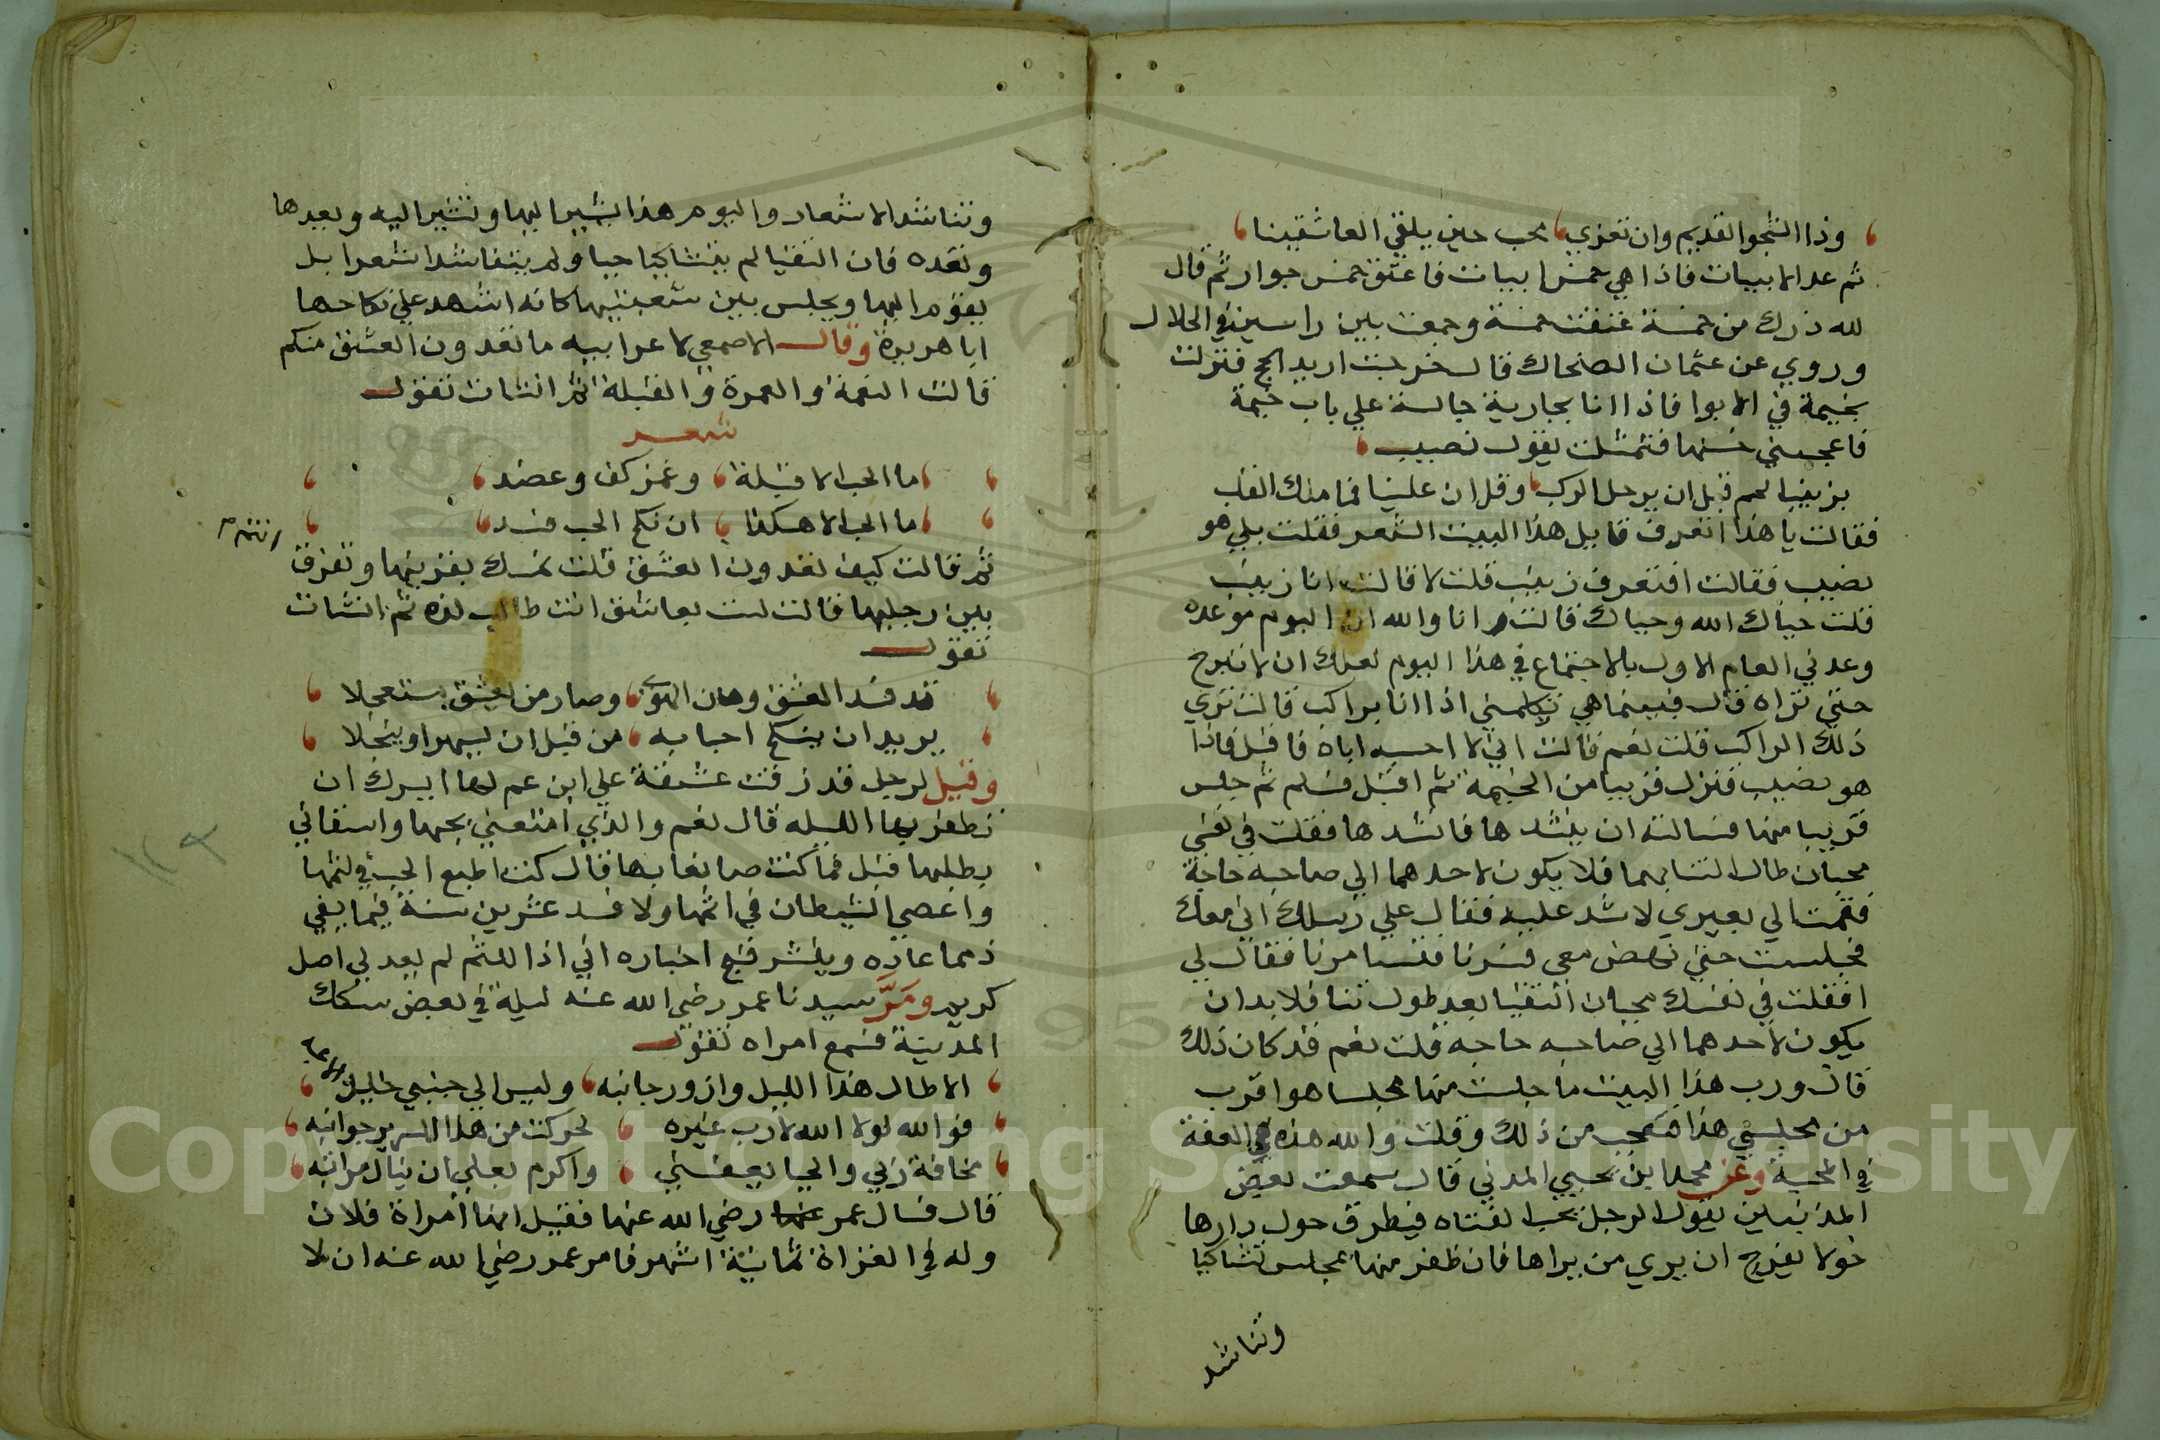 وذا الشجو القديم وان تعزي محب حين يلقي العاشقينا
ثم عد الابيات فاذا هي خمس ابيات فاعتق خمس جوار ثم قال
لله درك من خمسة عتقت خمسة وجمعت بين راسين في الحلال
وروي عن عثمان الضحاك قال خرجت اريد الحج فنزلت
بخيمة في الابوا فاذا انا بجارية جالسة علي باب خيمة
فاعجبني حسنها فتمثلت بقول نصيب
بزينب المم قبل ان يرحل الركب وقل ان علينا فما منك القلب
فقالت يا هذا اتعرف قايل هذا البيت الشعر فقلت بلي هو
نصيب فقالت افتعرف زينب قلت لا قالت انا زينب
قلت حياك الله وحياك قالت انا والله ان اليوم موعده
وعدني العام الاول بالاجتماع في هذا اليوم لعلك ان لا تبرح
حتي تراه قال فبينما هي تكلمني اذا انا براكب قالت تري
ذلك الراكب قلت نعم قالت اني لا احسبه اياه فاقبل فاذا
هو نصيب فنزل قريبا من الخيمة ثم اقبل فسلم ثم جلس
قريبا منها فسالته ان ينشدها فانشدها فقلت في نفسي
محبان طال التنا بهما فلا يكون لاحدهما الي صاحبه حاجة
فقمت الي بعيري لاشد عليه فقال علي رسلك اني معك
فجلست حتي نهض معي فسرنا فتسامرنا فقال لي
اقلت في نفسك محبان التقيا بعد طول تنا فلا بد ان
يكون لاحدهما الي صاحبه حاجه قلت نعم قد كان ذلك
قال ورب هذا البيت ما جلست منها مجلسا هو اقرب
من مجلسي هذا فتعجب من ذلك وقلت والله هذه هي العفة
في المحبة وعن محمد ابن يحيي المدني قال سمعت بعض
المدنيين يقول الرجل يحب الفتاه فيطوف حول دارها
حولا يفرح ان يري من يراها فان ظفر منها بمجلس تشاكيا
وتناشد
وتناشد الاشعار واليوم هذا يشير اليها وتشير اليه ويعدها
وتعده فان التقيا لم يتشاكيا حبا ولم يتناشدا شعرا بل
يقوم اليها ويجلس بين شعبتيها كانه اشهد علي نكاحها
ابا هريرة وقال الاصمعي لاعرابيه ما تعدون العشق منكم
قالت الضمة والغمزة والقبلة ثم انشات تقول
شعر
ما الحب الا قبلة وغمز كف وعضد
ما الحب الا هكذا ان نكح الحب فسد
ثم قالت كيف تعدون العشق قلت نمسك بقرنيها ونفرق
بين رجليها قالت لست بعاشق انت طالب لذه ثم انشات
تقول
قد فسد العشق وهان الهوي وصار من يعشق مستعجلا
يريد ان ينكح احبابه من قبل ان يسهر او ينحلا
وقيل لرجل قد زفت عشيقة علي ابن عم لها ايسرك ان
تظفر بها الليله قال نعم والذي امتعني بحبها واشقاني
بطلبها قيل فما كنت صانعا بها قال كنت اطيع الحب في لثمها
واعصي الشيطان في اثمها ولا افسد عشرين سنة فيما يبقي
ذما عاره وينشر قبيح اخباره اني اذا للئيم لم يعد لي اصل
كريم ومر سيدنا عمر رضي الله عنه ليلة في بعض سكك
المدينة فسمع امراه تقول
الا طال هذا الليل وازور جانبه وليس الي جنبي خليل الاعبه
فوالله لولا الله لا رب غيره لحركت من هذا السرير جوانبه
مخافة ربي والحيا يعفني واكرم بعلي ان ينال مراتبه
قال فسال عمر عنها رضي الله عنها فقيل انها امراة فلان
وله في الغزاة ثمانية اشهر فامر عمر رضي الله عنه ان لا
Copyright © King Saud University